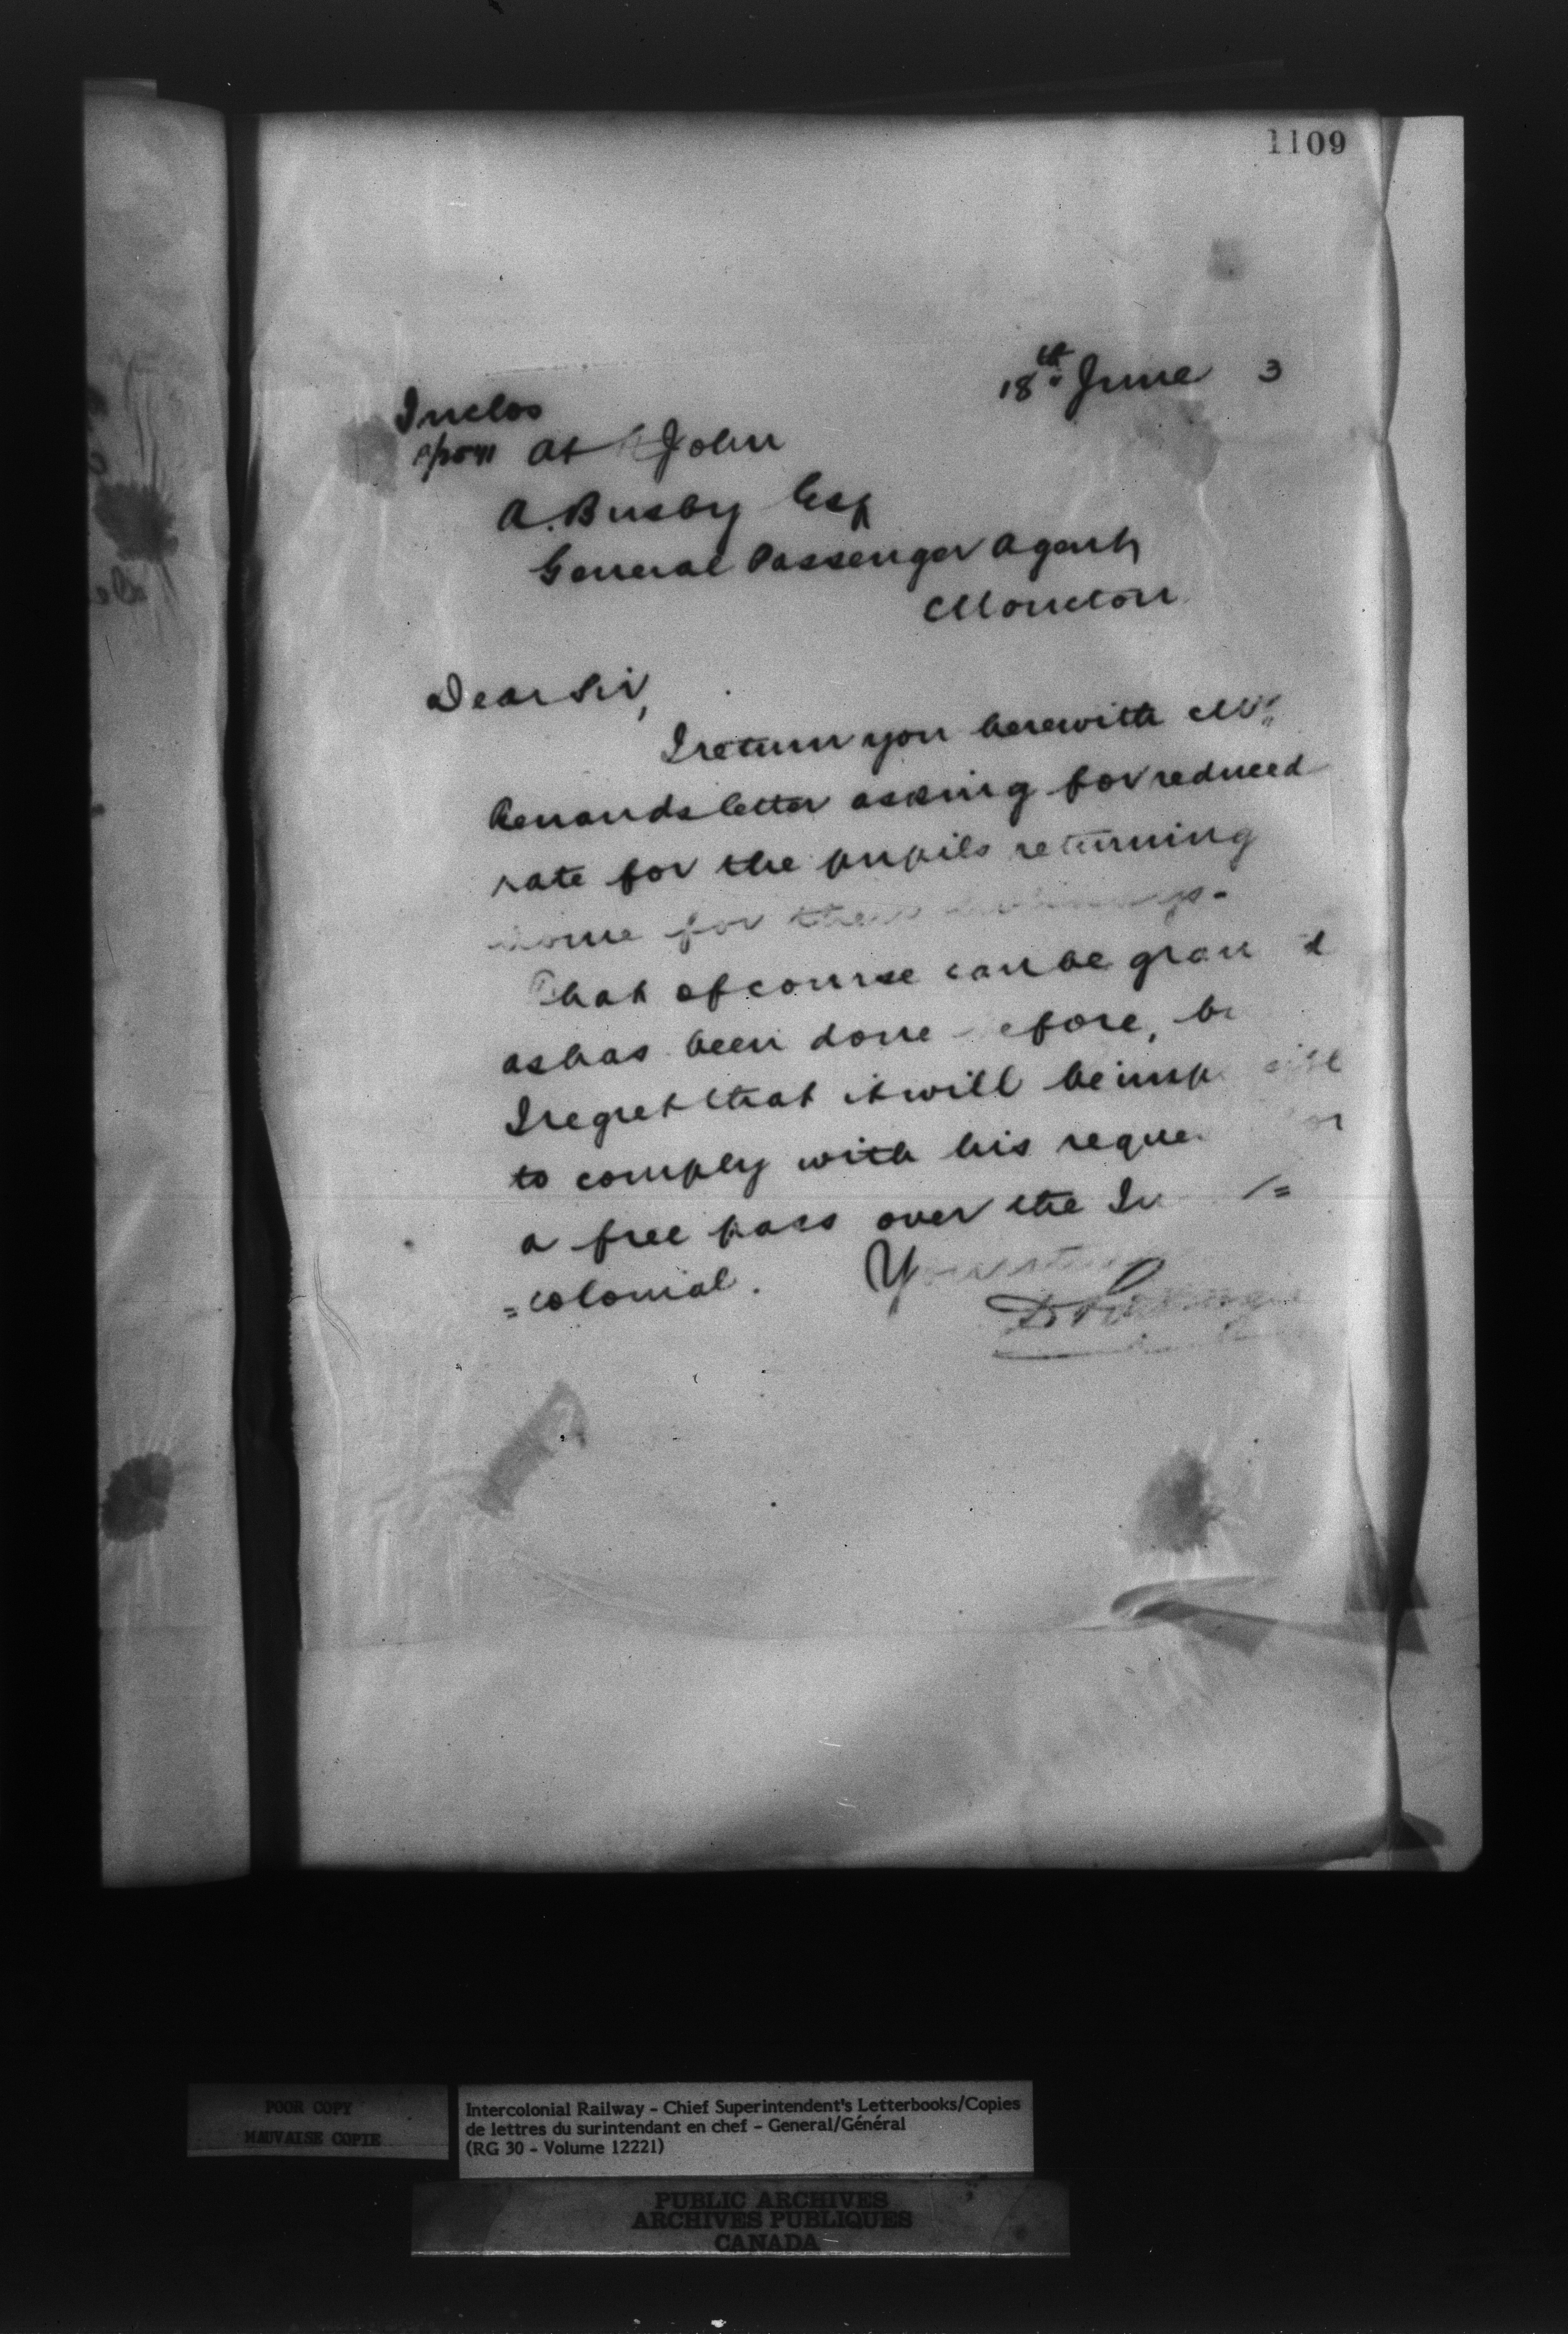 1109
18th June 3
Inclos
At St John
A. Busby Esq
General Passenger Agent,
Moncton
Dear Sir,
I return you herewith Mr
letter asking for reduced
rate for the pupils returning
home for their
That of course can be gran d
as has been done efore, bu
I regret that it will be imp ible
to comply with his reque or
a free pass over the In =
=colonial.
Yours truly
D Pottinger
POOR COPY
MAUVAISE COPIE
Intercolonial Railway - Chief Superintendent's Letterbooks/Copies
de lettres du surintendant en chef - General/Général
(RG 30 - Volume 12221)
PUBLIC ARCHIVES
ARCHIVES PUBLIQUES
CANADA